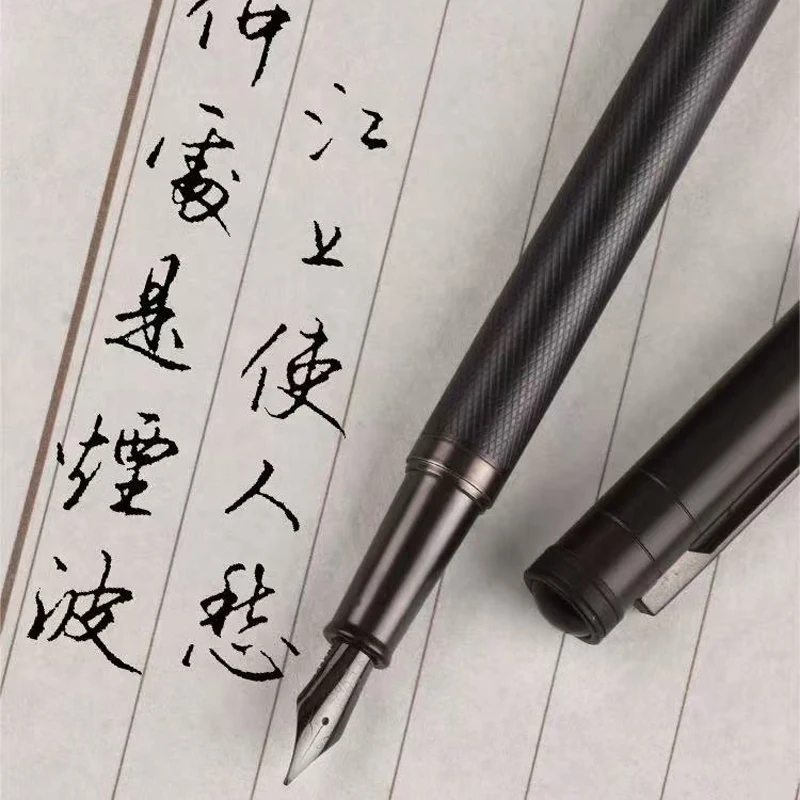 何處是煙波
江上使人愁